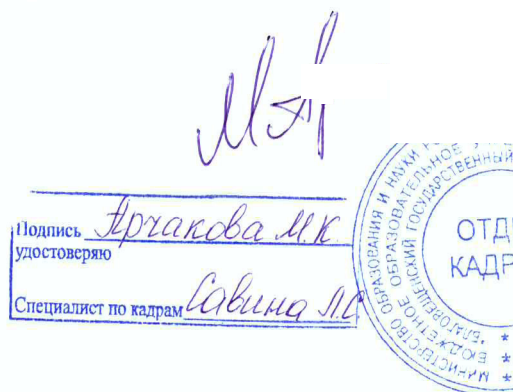 Подпись Арчакова М.К.
удостоверяю
Специалист по кадрам Савина Л.С
МИНИСТЕРСТВО ОБРАЗОВАНИЯ И НАУКИ
БЮДЖЕТНОЕ ОБРАЗОВАТЕЛЬНОЕ
"БЛАГОВЕЩЕНСКИЙ ГОСУДАРСТВЕННЫЙ
ОТДЕ
КАДР